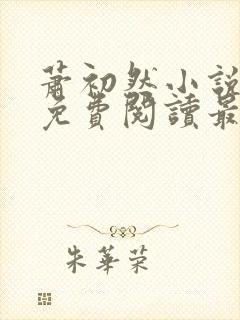 蕭初然小說
免費閱讀最
朱華荣